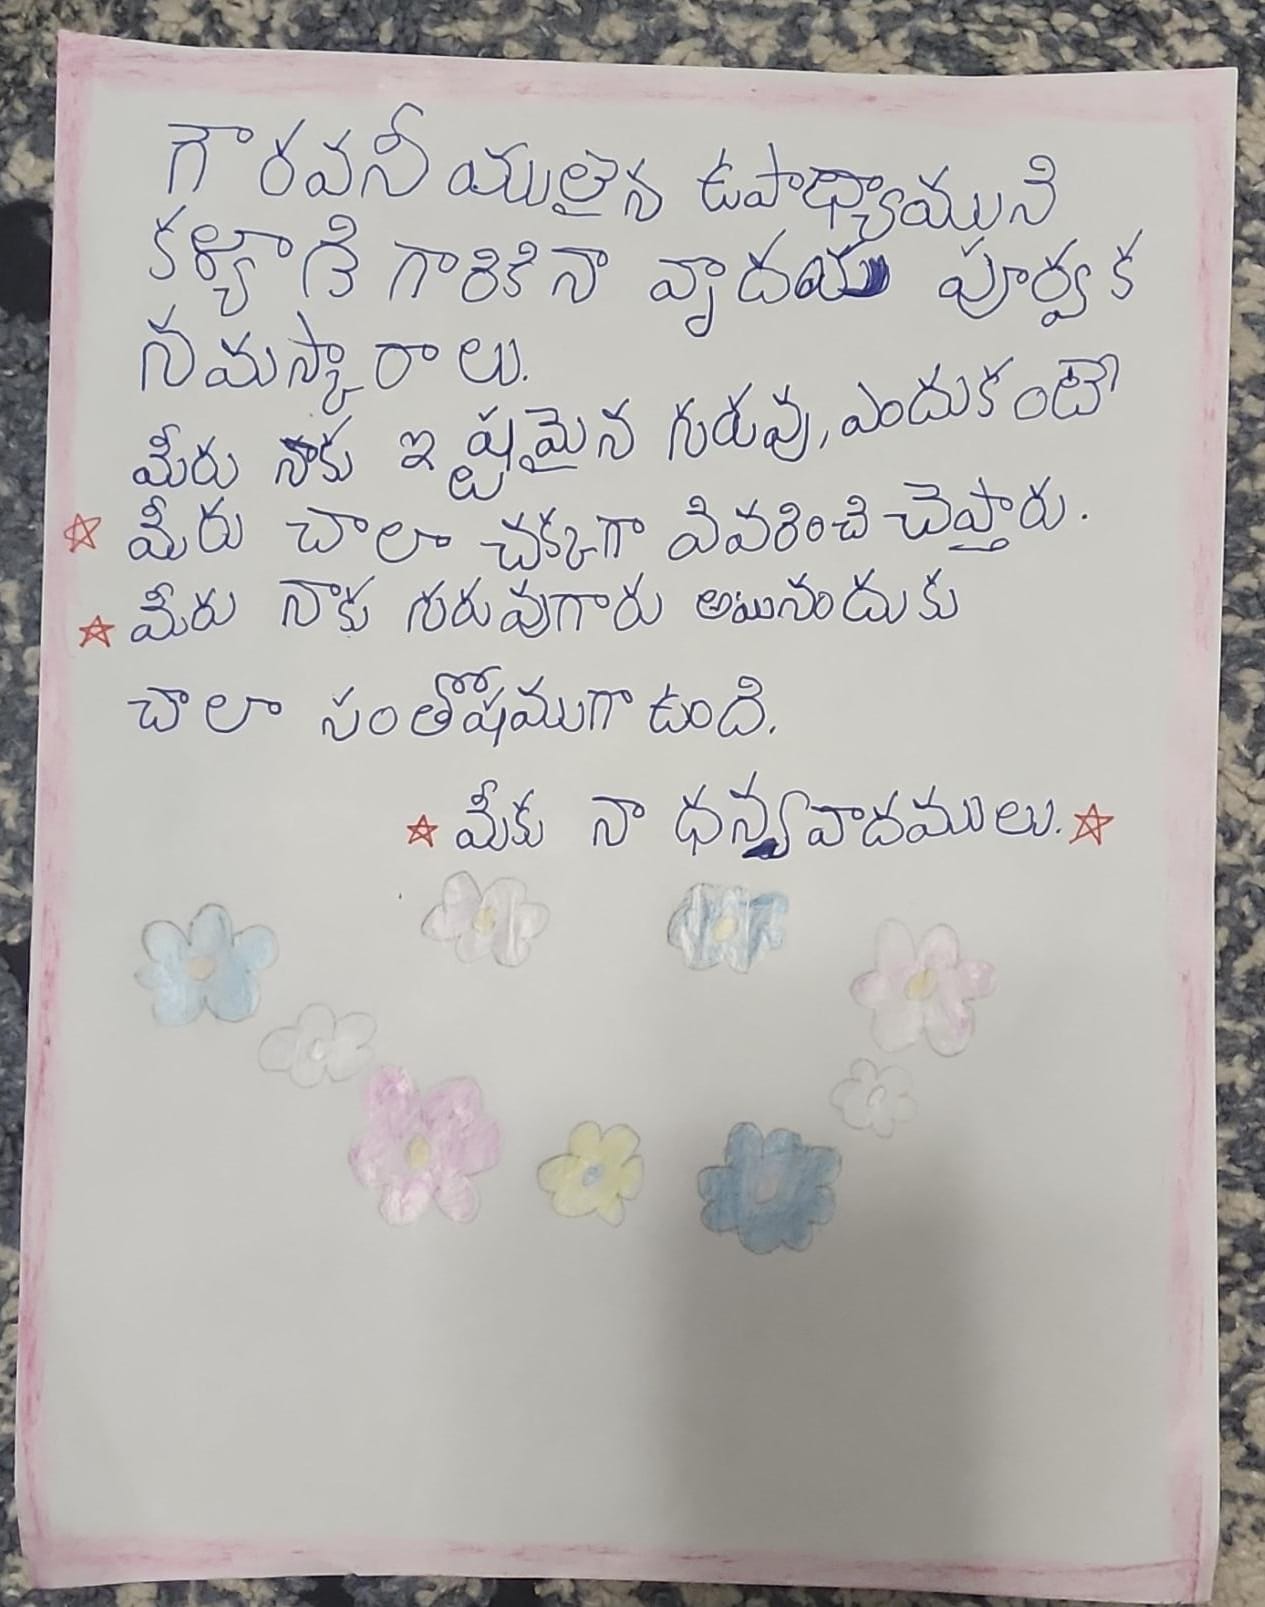 గౌరవనీయులైన ఉపాధ్యాయుని
కళ్యాణి గారికి నా హృదయ పూర్వక
నమస్కారాలు.
మీరు నాకు ఇష్టమైన గురువు, ఎందుకంటే
మీరు చాలా చక్కగా వివరించి చెప్తారు.
మీరు నాకు గురువుగారు అయినందుకు
చాలా సంతోషముగా ఉంది.
మీకు నా ధన్యవాదములు.